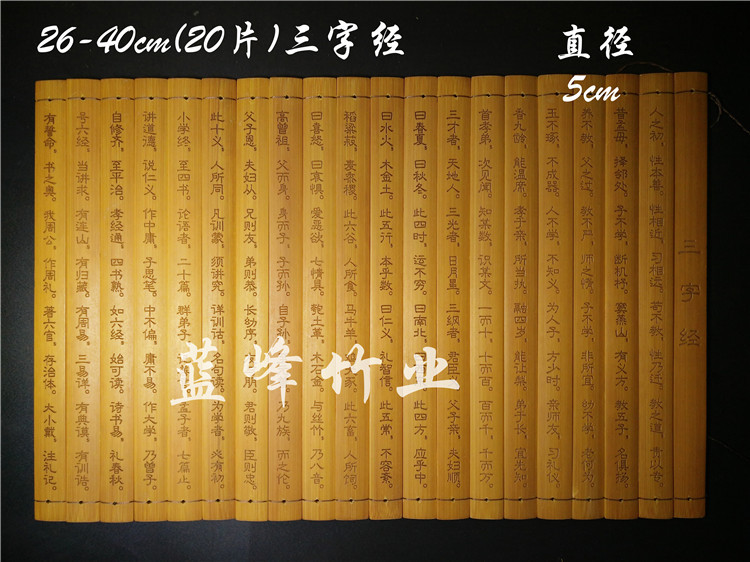 26-40cm(20片)三字经
直径
5cm
三字经
人之初。性本善。性相近。习相远。苟不教。性乃迁。教之道。贵以专。
昔孟母。择邻处。子不学。断机杼。窦燕山。有义方。教五子。名俱扬。
养不教。父之过。教不严。师之惰。子不学。非所宜。幼不学。老何为。
玉不琢。不成器。人不学。不知义。为人子。方少时。亲师友。习礼仪。
香九龄。能温席。孝于亲。所当执。融四岁。能让梨。弟于长。宜先知。
首孝弟。次见闻。知某数。识某文。一而十。十而百。百而千。千而万。
三才者。天地人。三光者。日月星。三纲者。君臣 父子亲。夫妇顺。
曰春夏。曰秋冬。此四时。运不穷。曰南北。曰 此四方。应乎中。
曰水火。木金土。此五行。本乎数。曰仁义。礼智信。此五常。不容紊。
稻粱菽。麦黍稷。此六谷。人所食。马牛羊。 豕。此六畜。人所饲。
曰喜怒。曰哀惧。爱恶欲。七情具。匏土革。木石金。与丝竹。乃八音。
高曾祖。父而身。身而子。子而孙。自子孙。 乃九族。而之伦。
父子恩。夫妇从。兄则友。弟则恭。长幼序。 朋。君则敬。臣则忠。
此十义。人所同。凡训蒙。须讲究。详训诂。名句读。为学者。必有初。
小学终。至四书。论语者。二十篇。群弟子。 孟子者。七篇止。
讲道德。说仁义。作中庸。子思笔。中不偏。庸不易。作大学。乃曾子。
自修齐。至平治。孝经通。四书熟。如六经。始可读。诗书易。礼春秋。
号六经。当讲求。有连山。有归藏。有周易。三易详。有典谟。有训诰。
有誓命。书之奥。我周公。作周礼。著六官。存治体。大小戴。注礼记。
蓝峰竹业